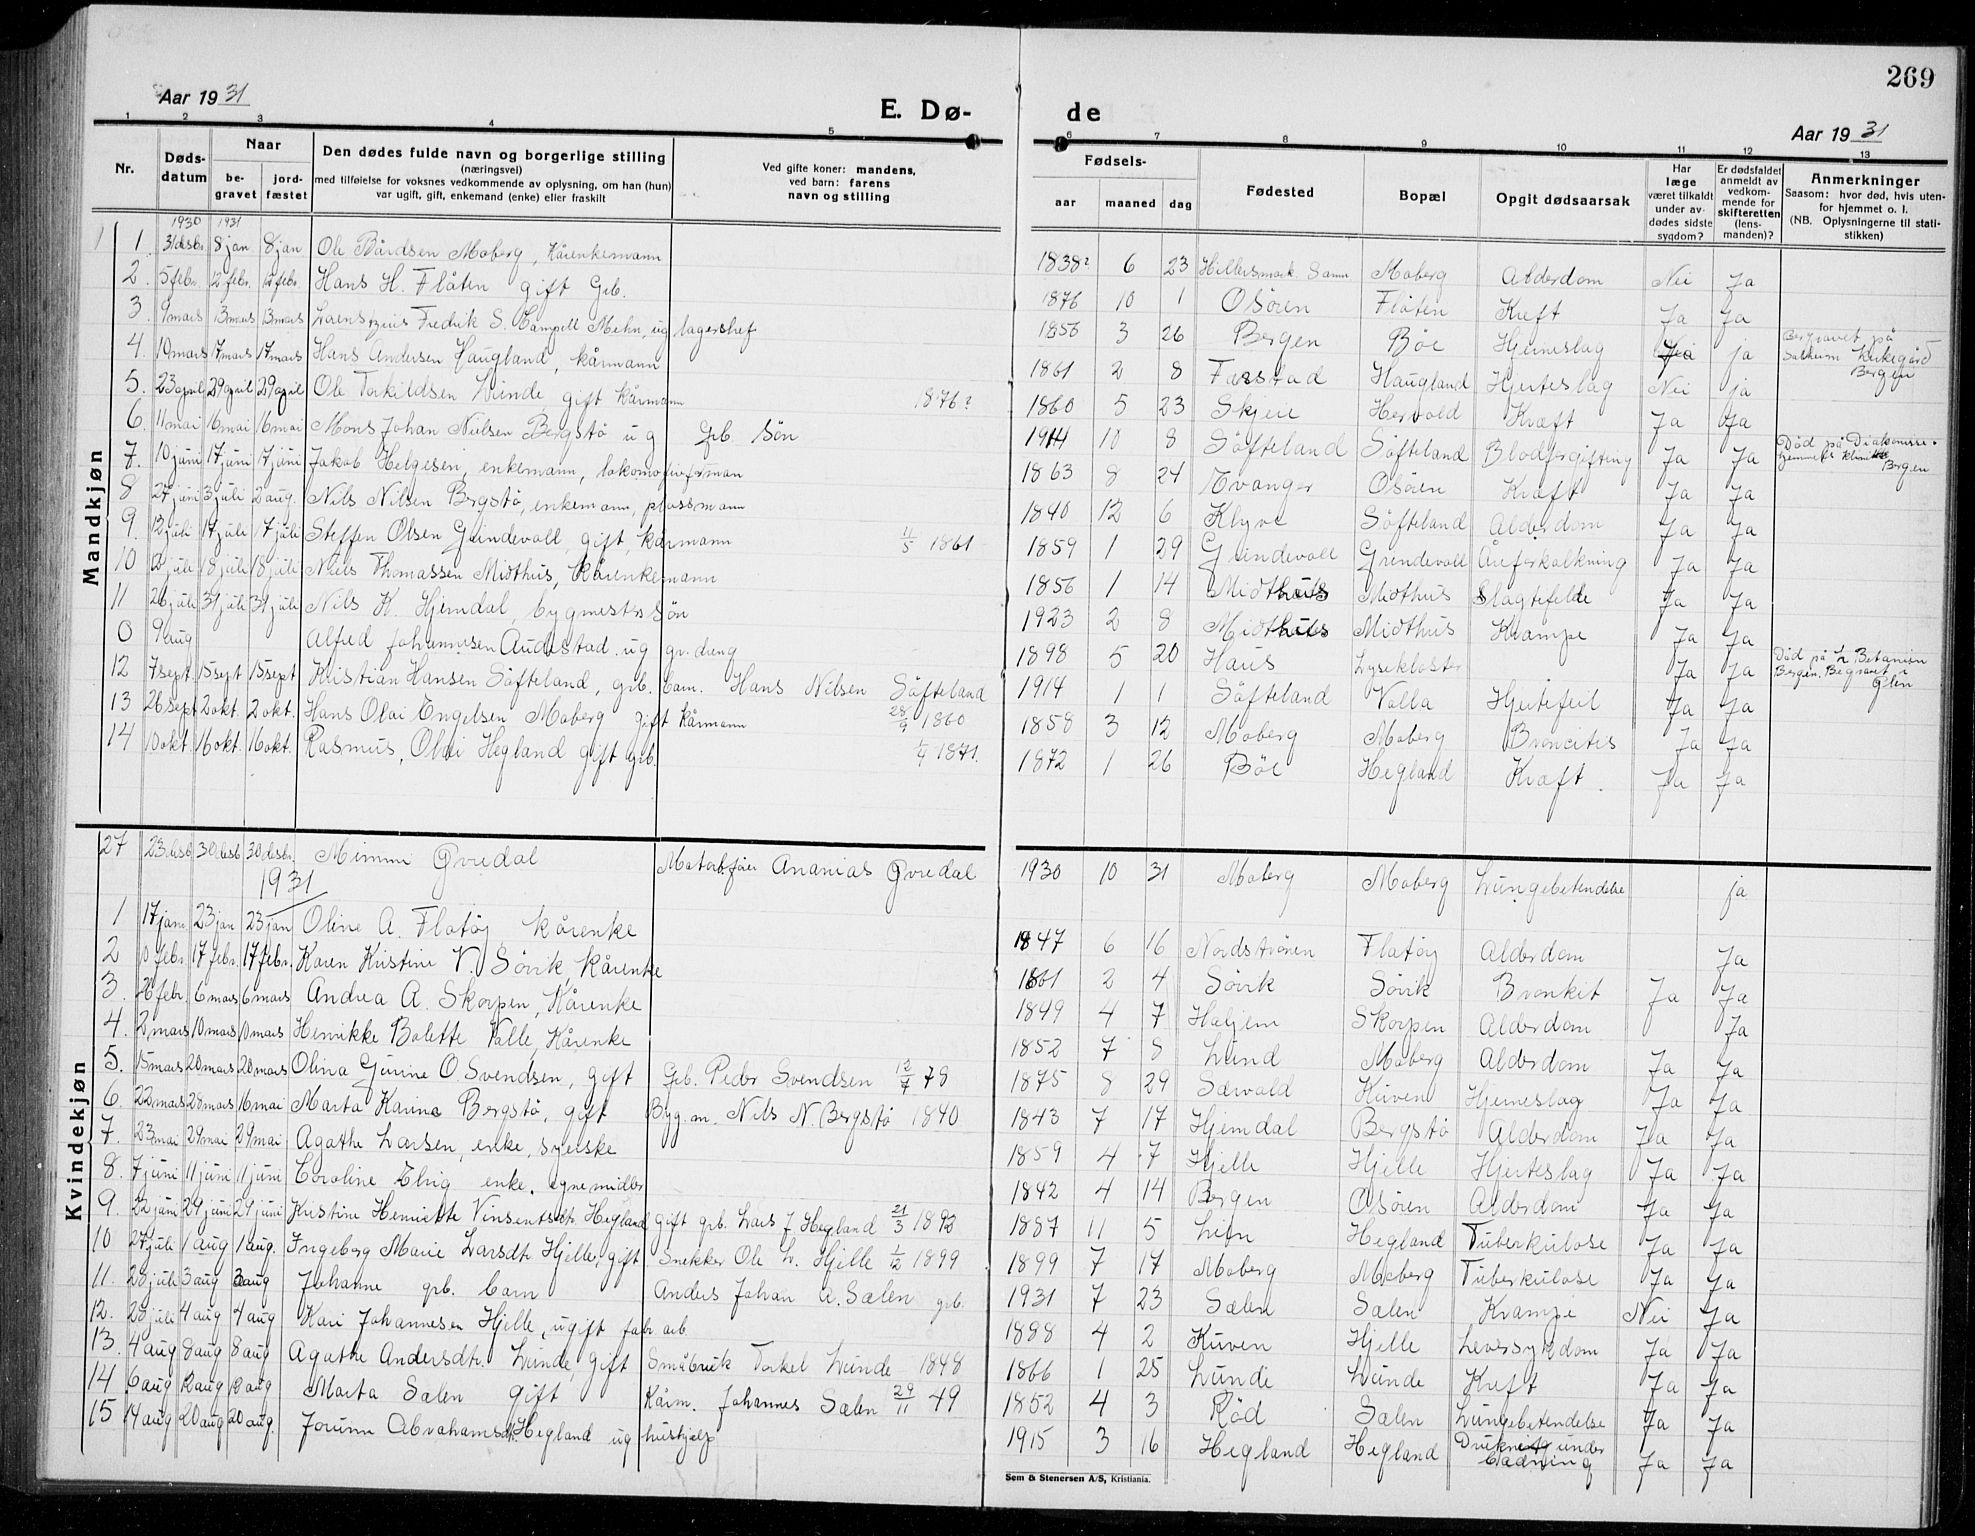 269
Aar 1931
E. Dø-
de
Aar 1931
1 2 3 4 5 6 7 8 9 10 11 12 13
Nr.
Døds-
datum
Naar
be-
gravet
jord-
fæstet
Den dødes fulde navn og borgerlige stilling
(næringsvei)
med tilføielse for voksnes vedkommende av oplysning, om han (hun)
var ugift, gift, enkemand (enke) eller fraskilt
Ved gifte koner: mandens,
ved barn: farens
navn og stilling
Fødsels-
aar maaned dag
Fødested
Bopæl
Opgit dødsaarsak
Har
læge
været tilkaldt
under av-
dødes sidste
sygdom?
Er dødsfaldet
anmeldt av
vedkom-
mende for
skifteretten
(lens-
manden)?
Anmerkninger
Saasom: hvor død, hvis uten-
for hjemmet o. l.
(NB. Oplysningerne til stati-
stikken)
Mandkjøn
1930 1931
1. 31 desbr. 8 jan 8 jan Ole Bårdsen Moberg, Kårenkemann 1838? 6 23 Moberg Alderdom Nei Ja
2. 5 febr. 12 febr. 12 febr. Hans H. Flåten gift Grb. 1876 10 1 Osøren Flåten Kreft Ja Ja
3. 9 mars 13 mars 13 mars Fredrik S. Campell Mohn, ug lagershef 1856 3 26 Bergen Bøe Hjerneslag ja Begravet på
Solheim Kirkegård
Bergen
4. 10 mars 17 mars 17 mars Hans Andersen Haugland, kårmann 1861 2 8 Haugland Hjerteslag Nei ja
5. 23 april 29 april 29 april Ole Torkildsen Lunde gift kårmann 1876? 1860 5 23 Skjeie Kræft Ja Ja
6. 11 mai 16 mai 16 mai Mons Johan Nielsen Bergstø ug Grb søn 1914 10 8 Søfteland Søfteland Blodforgiftning Ja Ja Død på Diakonisse-
hjemmets klinikk
Bergen
7. 10 juni 17 juni 17 juni Jakob Helgesen, enkemann, 1863 8 24 Evanger Osøren Kræft Ja Ja
8 27 juni 3 juli 2 aug. Nils Nilsen Bergstø, enkemann, plassmann 1840 12 6 Klyve Søfteland Alderdom Ja Ja
9. 12 juli 17 juli 17 juli Steffen Olsen Grindevoll, gift, kårmann 1/5 1861 1859 1 29 Grindevoll Grindevoll Åreforkalkning Ja Ja
10 12 juli 18 juli 18 juli Niels Thomassen Midthus, Kårenkemann 1856 1 14 Midthus Midthus Slagtefelde Ja Ja
11 26 juli 31 juli 31 juli Nils K. Hjemdal, bygmesters søn 1923 2 8 Midthus Midthus Krampe Ja Ja
0 9 aug Alfred Johannesen Audestad ug gr. dreng 1898 5 20 Haus Lysekloster Ja Ja Død på h. Betanien
Bergen. Begravet i
Glen
12 7 sept 15 sept 15 sept Kristian Hansen Søfteland, grb. barn. Hans Nilsen Søfteland 1914 1 1 Søfteland Valla Hjertefeil Ja Ja
13 26 sept 2 okt. 2 okt. Hans Olai Engelsen Moberg gift kårmann 28/9 1860 1858 3 12 Moberg Moberg Broncitis Ja Ja
14 10 okt. 16 okt. 16 okt. Rasmus Olai Hegland gift grb. 1/4 1871. 1872 1 26 Bøe Hegland Kræft. Ja Ja
Kvindekjøn
27 23 desb 30 desb 30 desbr. Mimmi Øvredal Ananias Øvredal 1930 10 31 Moberg Moberg Lungebetendelse ja
1931
1 17 jan 23 jan 23 jan Oline A. Flatøy kårenke 1847 6 16 Nordstrønen Flatøy Alderdom Ja
2 10 febr. 17 febr. 17 febr. Karen Kristine V. Søvik, kårenke 1861 2 4 Søvik Søvik Bronkit Ja Ja
3. 26 febr. 6 mars 6 mars Andrea A. Skorpen, Kårenke 1849 4 7 Haljem Skorpen Alderdom Ja
4. 2 mars 10 mars 10 mars Henrikke Bolette Valle, Kårenke 1852 7 8 Lund Moberg Alderdom Ja Ja
5. 15 mars 20 mars 20 mars Olina Gurine O. Svendsen, gift Grb. Peder Svendsen 12/7 78 1875 8 29 Sævold Kuven Hjerneslag Ja Ja
6. 22 mars 28 mars 16 mai Marta Karina Bergstø, gift Byg. m. Nils N. Bergstø 1840 1843 7 17 Hjemdal Bergstø Alderdom Ja Ja
7. 23 mai 29 mai 29 mai Agathe Larsen, enke, syerske 1859 4 7 Hjelle Hjelle Hjerteslag Ja Ja
8. 7 juni 11 juni 11 juni Caroline enke. egne midler 1842 4 14 Bergen Osøren Alderdom Ja Ja
9. 22 juni 29 juni 29 juni Kristine Henriette Vinsentsdtr. Hegland gift grb. Lars J. Hegland 21/3 1892 1887 11 5 Lien Hegland Tuberkulose Ja Ja
10 27 juli 1 aug 1 aug. Ingeborg Marie Larsdtr Hjelle, gift Snekker Ole L. Hjelle 1/2 1899 1899 7 17 Moberg Moberg Tuberkulose Ja Ja
11. 28 juli 3 aug 3 aug Johanne grb. barn Anders Johan A. Sælen grb. 1931 7 23 Sælen Sælen Krampe Nei Ja
12. 28 juli 4 aug 4 aug Kari Johannesen Hjelle, ugift fabr. arb. 1888 4 2 Kuven Hjelle Leversykdom Ja Ja
13. 4 aug 8 aug 8 aug Agathe Andersdtr. Lunde, gift Småbruk Torkel Lunde 1848 1866 1 25 Lunde Lunde Kreft Ja Ja
14 6 aug 12 aug 12 aug Marta Sælen gift Kårm. Johannes Sælen 29/11 49 1852 4 3 Rød Sælen Lungebetendelse Ja Ja
15 14 aug 20 aug 20 aug. Jorunn Abrahamsdtr. Hegland ug hushjelp 1915 3 16 Hegland Hegland Druknet under
badning Ja Ja
Sem & Stenersen A/S, Kristiania.